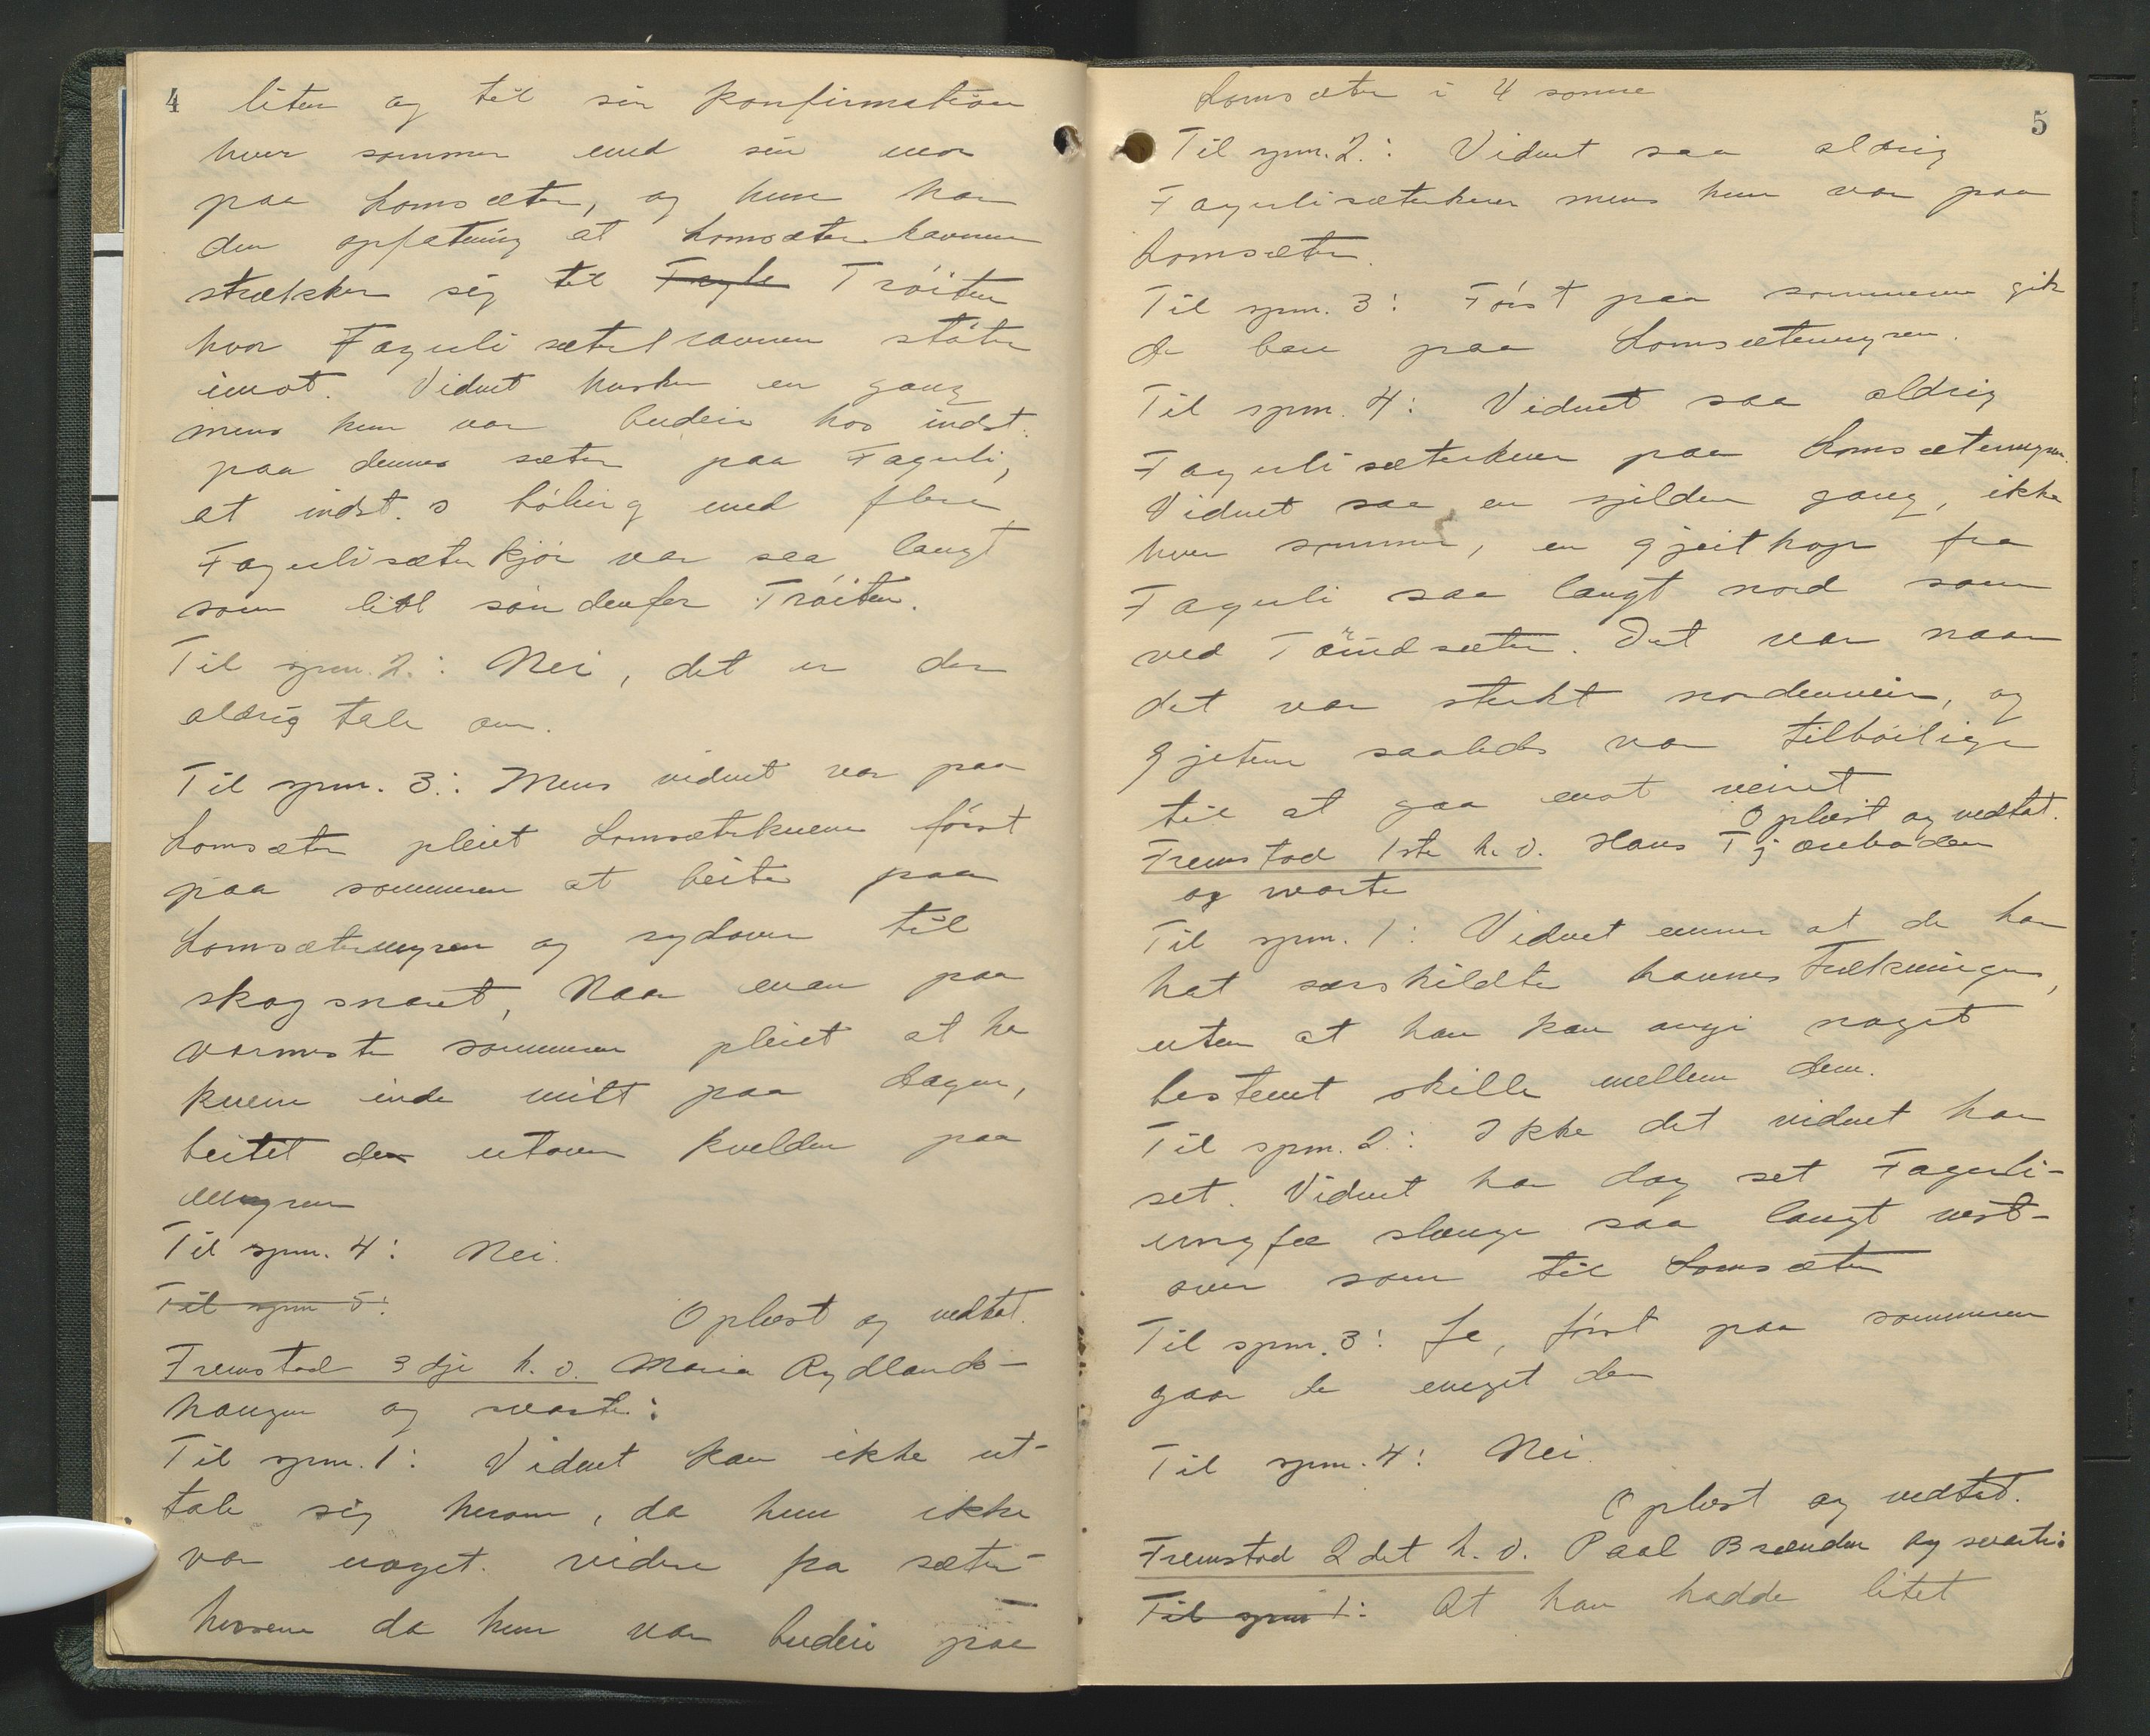 4
liten og til sin konfirmation
hver sommer med sin mor
paa Lomsæter, og hun har
den opfatning at Lomsæterhavnen
strækker sig til Fagle Tröiten
hvor Fagerlisæterhavnen stöter
imot. Vidnet husker en gang
mens hun var budeie hos indst.
paa dennes sæter paa Fagerli,
at indst.s böling med flere
Fagerlisæterkjör var saa langt
som litt söndenfor Tröiten.
Til spm. 2.: Nei, det er der
aldrig tale om.
Til spm. 3.: Mens vidnet var paa
Lomsæter pleiet Lomsæterkuene först
paa sommeren at beite paa
Lomsætermyren og sydover til
skogsnaret, Naar man paa
varmeste sommeren pleiet at ha
kuene inde midt paa dagen,
beitet de utover kvelden paa
myren
Til spm. 4: Nei.
Til spm 5:
Oplæst og vedtat.
Fremstod 3dje h. v. Maria Rydlands-
haugen og svarte:
Til spm. 1: Vidnet kan ikke ut-
tale sig herom, da hun ikke
var noget videre fra sæter-
husene da hun var budeie paa
5
Lomsæter i 4 somre
Til spm. 2.: Vidnet saa aldrig
Fagerlisæterkuer mens hun var paa
Lomsæter.
Til spm. 3: Först paa sommeren gik
de bare paa Lomsætermyren.
Til spm. 4: Vidnet saa aldrig
Fagerlisæterkuer paa Lomsætermyren.
Vidnet saa en sjelden gang, ikke
hver sommer, en gjeithop fra
Fagerli saa langt nord som
ved Töindsæter. Det var naar
det var sterkt nordenveir, og
gjetene saaledes var tilböilige
til at gaa mot veiret
Oplæst og vedtat.
Fremstod 1ste h. v. Hans Tjærebaden
og svarte
Til spm. 1: Vidnet mener at de har
hat særskildte havnestrækninger,
uten at han kan angi noget
bestemt skille mellem dem.
Til spm. 2: Ikke det vidnet har
set. Vidnet har dog set Fagerli-
ungfæ slænge saa langt vest-
over som til Lomsæter
Til spm. 3: Ja, först paa sommeren
gaar de meget der
Til spm. 4: Nei.
Oplæst og vedtat.
Fremstod 2det h. v. Paal Brænden og svarte:
Til spm 1: At han hadde litet